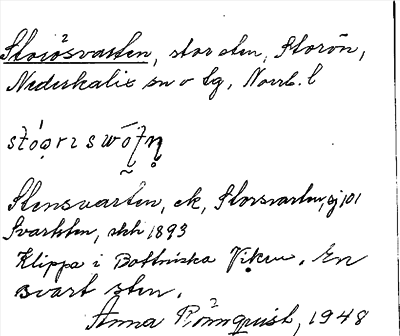 Storösvarten, stor sten, Storön,
Nederkalix sn o tg, Norrb. l
Stensvarten, ek, Storsvarten, sj 101
Svarten, skk 1893
Klippa i Bottniska Viken. En
svart sten.
Anna Rönnquist, 1948